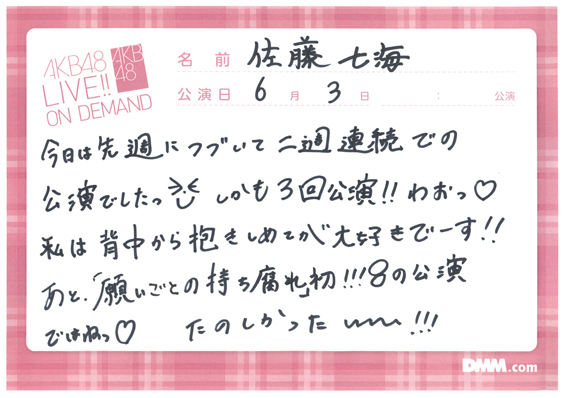 AKB48
LIVE!!
ON DEMAND
AKB
48
名前 佐藤 七海
公演日 6月 3日 : 公演
今日は先週につづいて二週連続での
公演でしたっ しかも3回公演!! わおっ♡
私は背中から抱きしめてが大好きでーす!!
あと、「願いごとの持ち腐れ」初!!! 8の公演
ではねっ♡ たのしかった〜〜!!!
DMM.com